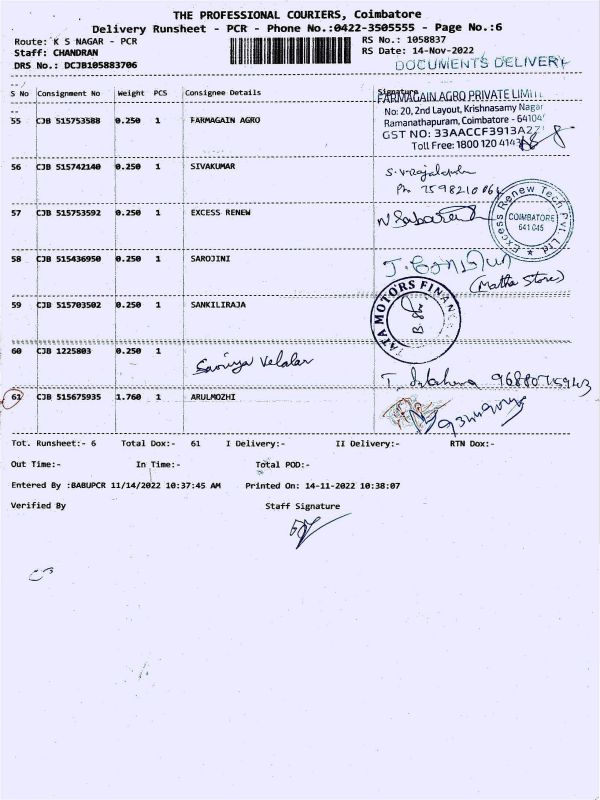 THE PROFESSIONAL COURIERS, Coimbatore
Delivery Runsheet - PCR - Phone No.:0422-3505555 - Page No.:6
Route: K S NAGAR - PCR
RS No.: 1058837
Staff: CHANDRAN
RS Date: 14-Nov-2022
DRS No.: DCJB105883706
DOCUMENTS DELIVERY
S No Consignment No Weight PCS Consignee Details Signature
55 CJB 515753588 0.250 1 FARMAGAIN AGRO
FARMAGAIN AGRO PRIVATE LIMIT
No: 20, 2nd Layout, Krishnasamy Nagar
Ramanathapuram, Coimbatore - 64104
GST NO: 33AACCF3913A2
Toll Free: 1800 120 414
56 CJB 515742140 0.250 1 SIVAKUMAR
Ph 7598210064
57 CJB 515753592 0.250 1 EXCESS RENEW
Excess Renew Tech Pvt. Ltd.
COIMBATORE
641 045
58 CJB 515436950 0.250 1 SAROJINI
(Matha Stores)
59 CJB 515703502 0.250 1 SANKILIRAJA
TATA MOTORS FINANCE
60 CJB 1225803 0.250 1
Velalar
61 CJB 515675935 1.760 1 ARULMOZHI
Tot. Runsheet:- 6 Total Dox:- 61 I Delivery:- II Delivery:- RTN Dox:-
Out Time:- In Time:- Total POD:-
Entered By :BABUPCR 11/14/2022 10:37:45 AM Printed On: 14-11-2022 10:38:07
Verified By Staff Signature